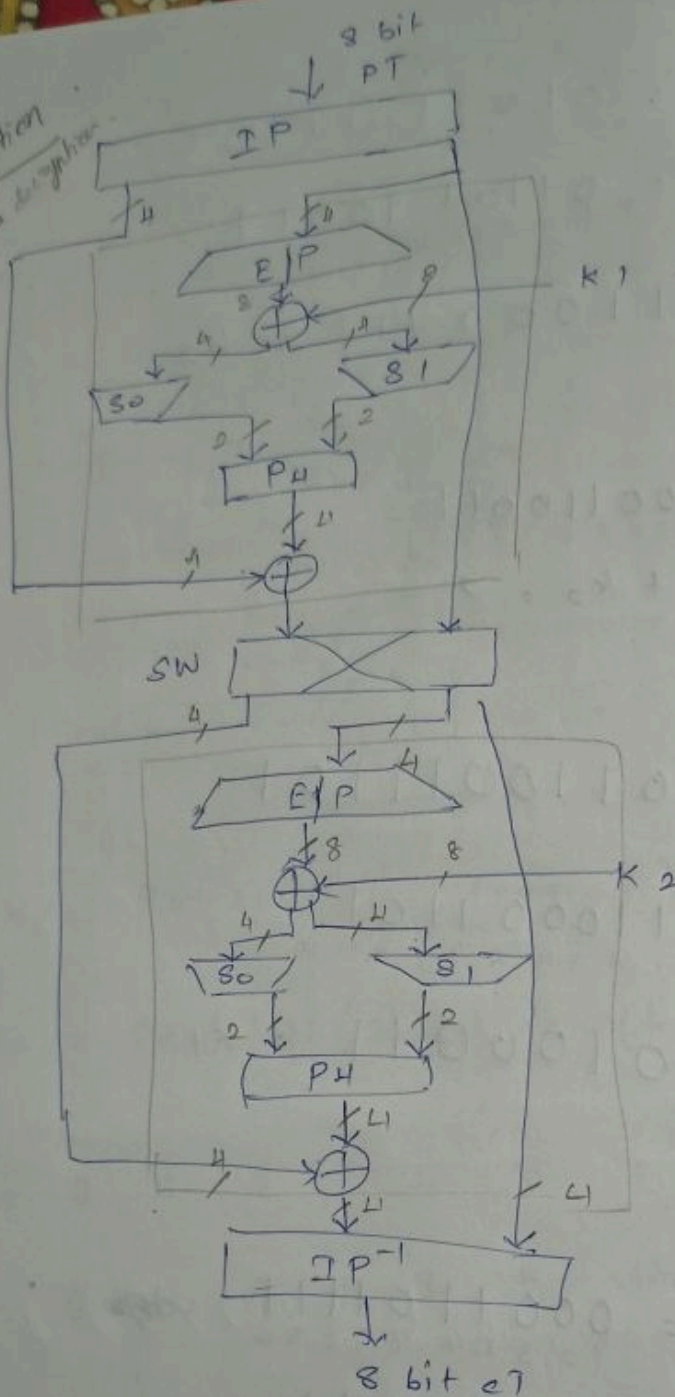 8 bit
PT
IP
4
4
E/P
8
8
K1
4
4
S0
S1
2
2
P4
4
4
SW
4
4
E/P
8
8
K2
4
4
S0
S1
2
2
P4
4
4
4
4
IP-1
8 bit CT